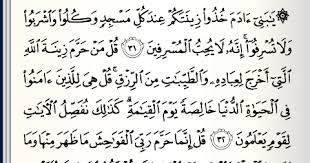 ۞ يَٰبَنِيٓ ءَادَمَ خُذُوا۟ زِينَتَكُمْ عِندَ كُلِّ مَسْجِدٍ وَكُلُوا۟ وَٱشْرَبُوا۟
وَلَا تُسْرِفُوٓا۟ إِنَّهُۥ لَا يُحِبُّ ٱلْمُسْرِفِينَ ٣١ قُلْ مَنْ حَرَّمَ زِينَةَ ٱللَّهِ
ٱلَّتِيٓ أَخْرَجَ لِعِبَادِهِۦ وَٱلطَّيِّبَٰتِ مِنَ ٱلرِّزْقِ قُلْ هِيَ لِلَّذِينَ ءَامَنُوا۟
فِي ٱلْحَيَوٰةِ ٱلدُّنْيَا خَالِصَةً يَوْمَ ٱلْقِيَٰمَةِ كَذَٰلِكَ نُفَصِّلُ ٱلْءَايَٰتِ
لِقَوْمٍ يَعْلَمُونَ ٣٢ قُلْ إِنَّمَا حَرَّمَ رَبِّيَ ٱلْفَوَٰحِشَ مَا ظَهَرَ مِنْهَا وَمَا